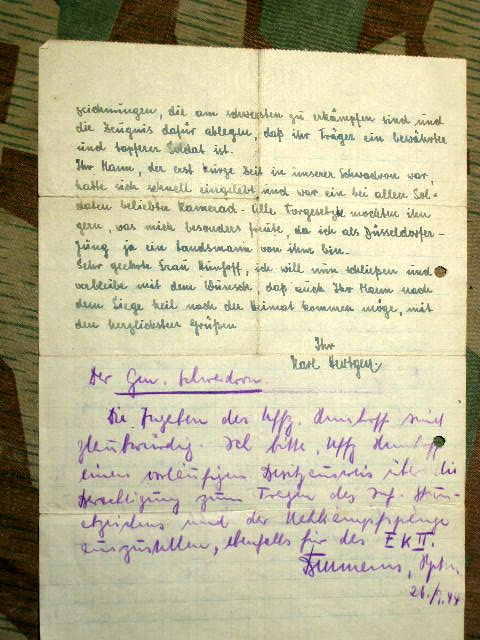 zeichnungen, die am schwersten zu erkämpfen sind und
die Zeugnis dafür ablegen, daß ihr Träger ein bewährter
und tapferer Soldat ist.
Ihr Mann, der erst kurze Zeit in unserer Schwadron war,
hatte sich schnell eingelebt und war ein bei allen Sol-
daten beliebter Kamerad. Alle Vorgesetzte mochten ihn
gern, was mich besonders freute, da ich als Düsseldorfer-
Jung ja ein Landsmann von ihm bin.
Sehr geehrte Frau, ich will nun schließen und
verbleibe mit dem Wunsch, daß auch Ihr Mann nach
dem Siege heil nach der Heimat kommen möge, mit
den herzlichsten Grüßen
Ihr
Karl
Der Gen. Schwadron.
Die Angaben des Uffz. sind
glaubwürdig. Ich bitte, Uffz.
einen vorläufigen Besitzausweis über die
Berechtigung zum Tragen des Inf. Sturm-
abzeichens und der Nahkampfspange
auszustellen, ebenfalls für das E K II.